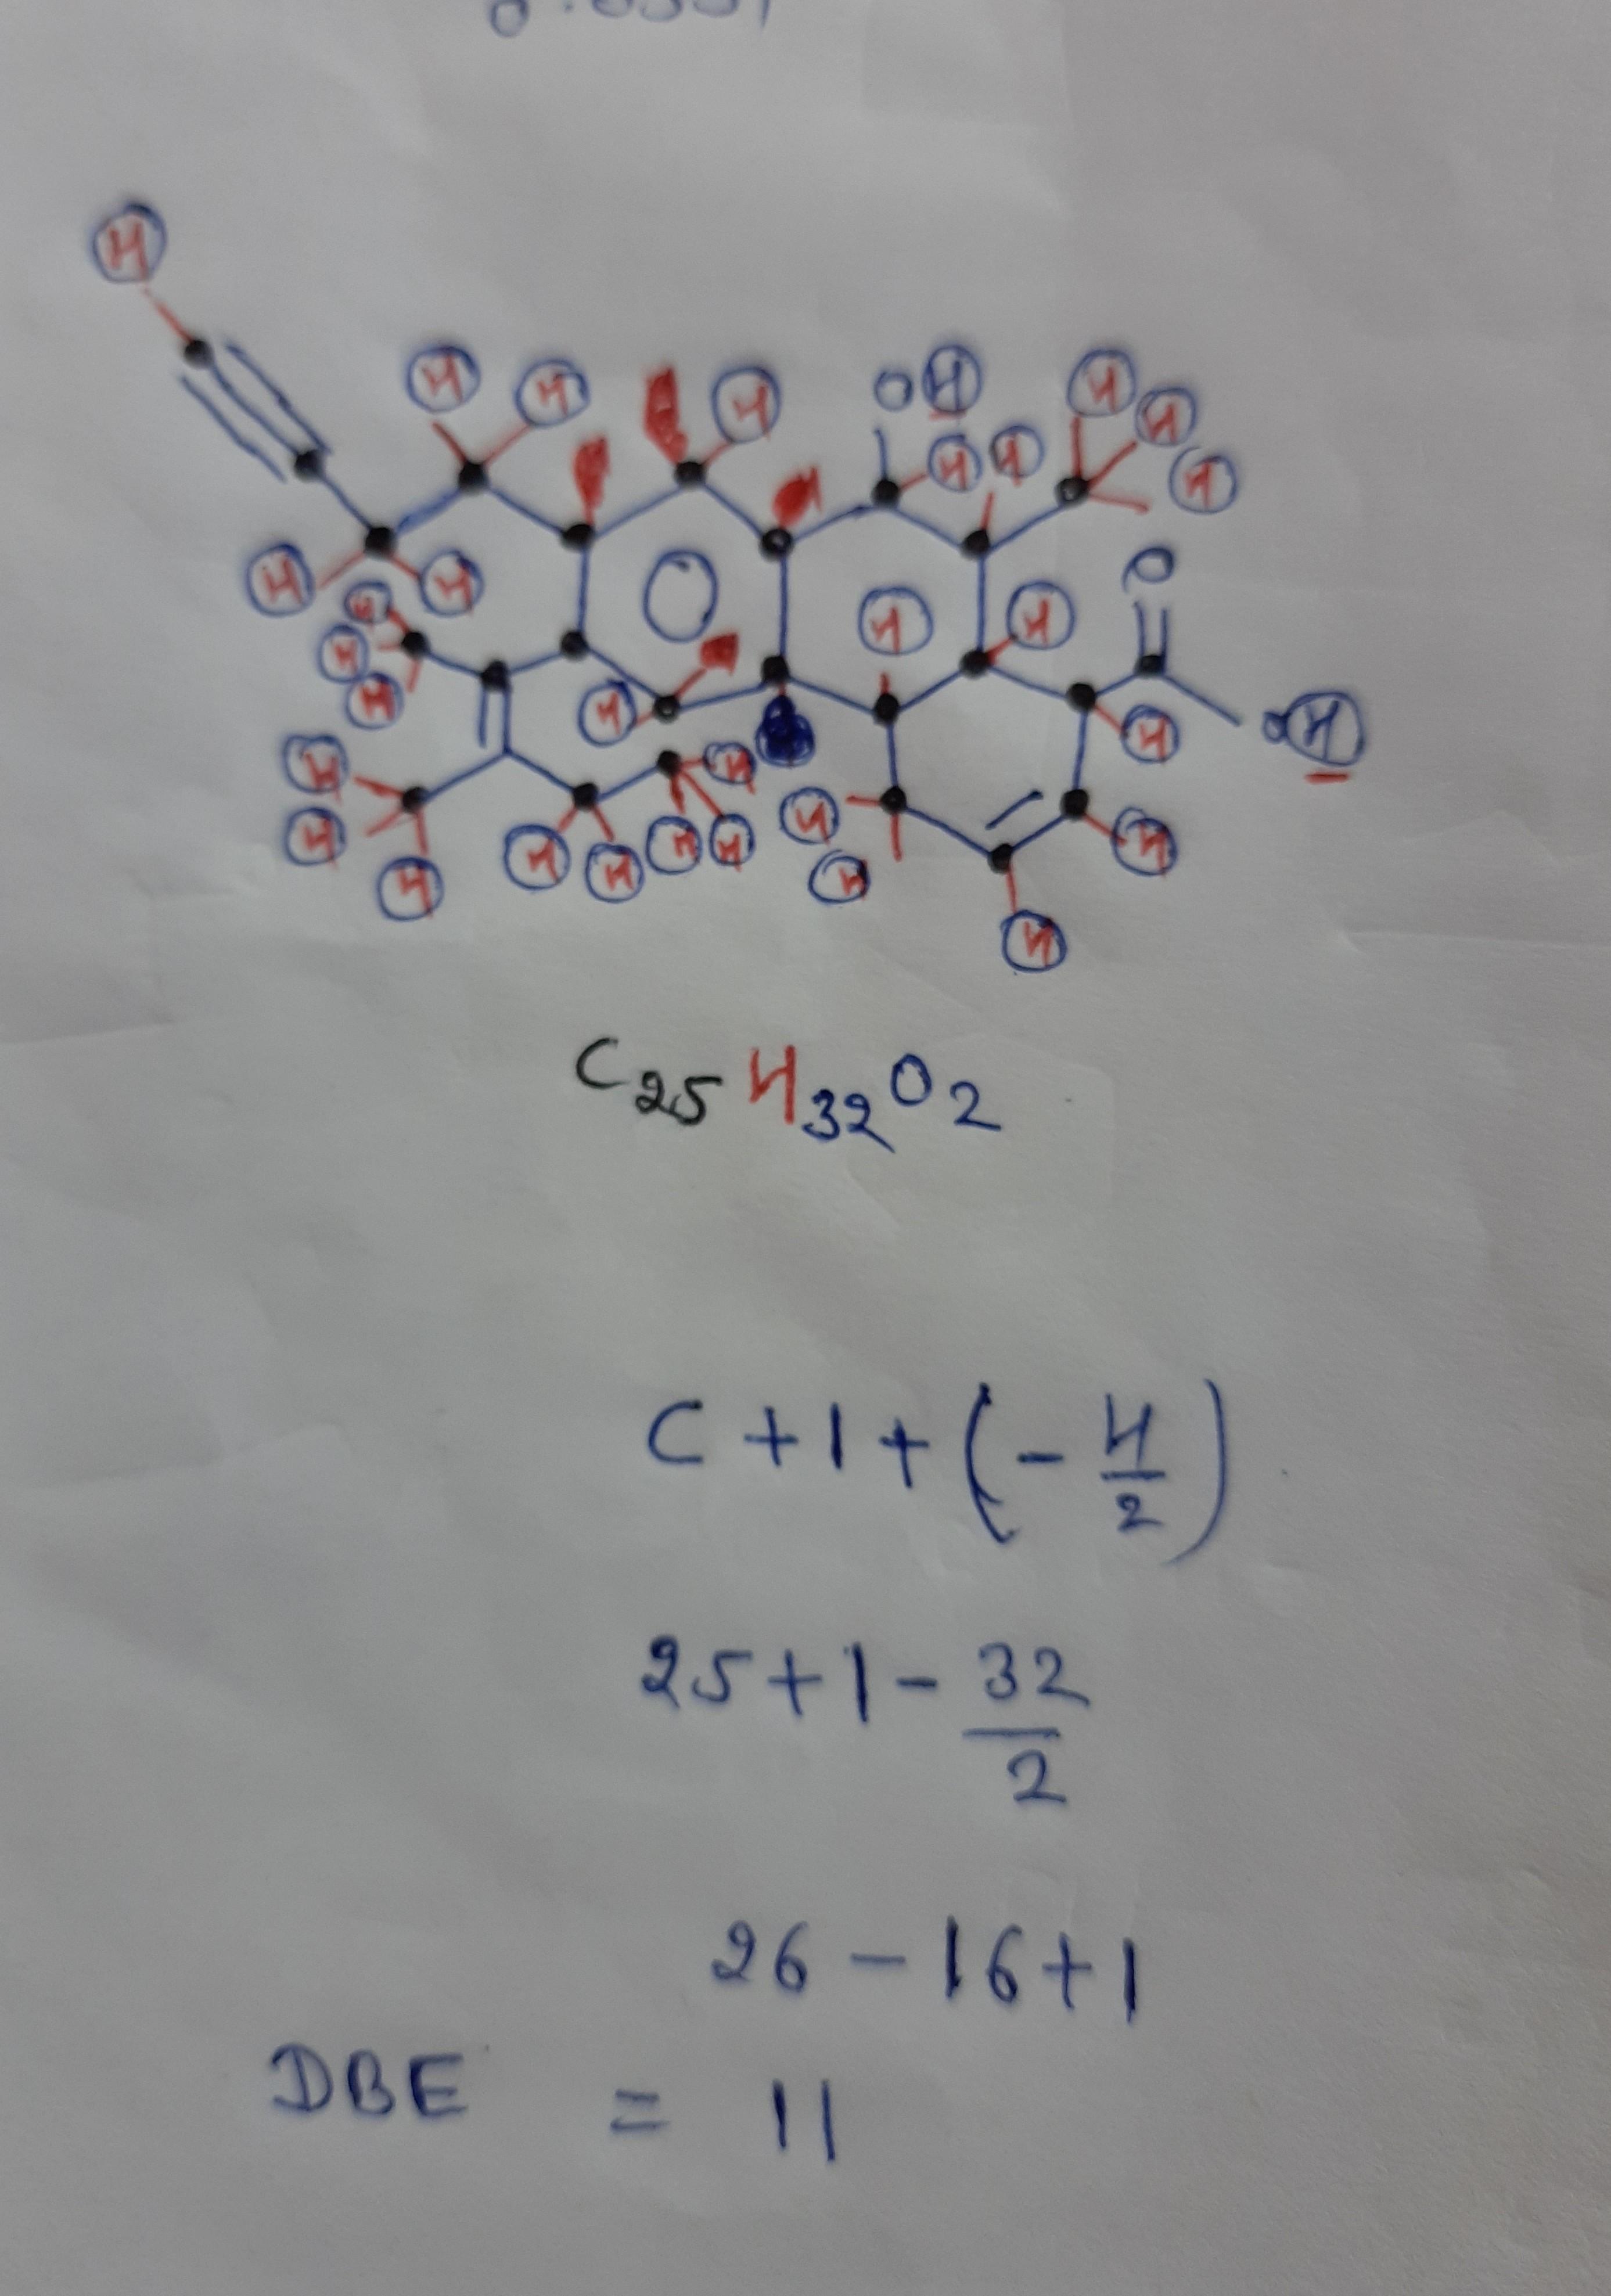 H
H H H OH H H
H H H
H H H H H O
H H H OH
H H H H
H H H H H H H
H H
H
C25H32O2
C + 1 + (- H/2)
25 + 1 - 32/2
26 - 16 + 1
DBE = 11